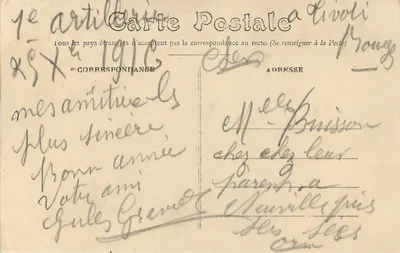 1e artillerie
Carte Postale
a Tivoli
Tous les pays étrangers n'acceptent pas la correspondance au recto (Se renseigner à la Poste)
Bourges
Cher
CORRESPONDANCE
ADRESSE
mes amitiés les
plus sincère
Bonne année
Votre ami
Jules
Melle Buisson
chez chez leur
parents a
Neuville près